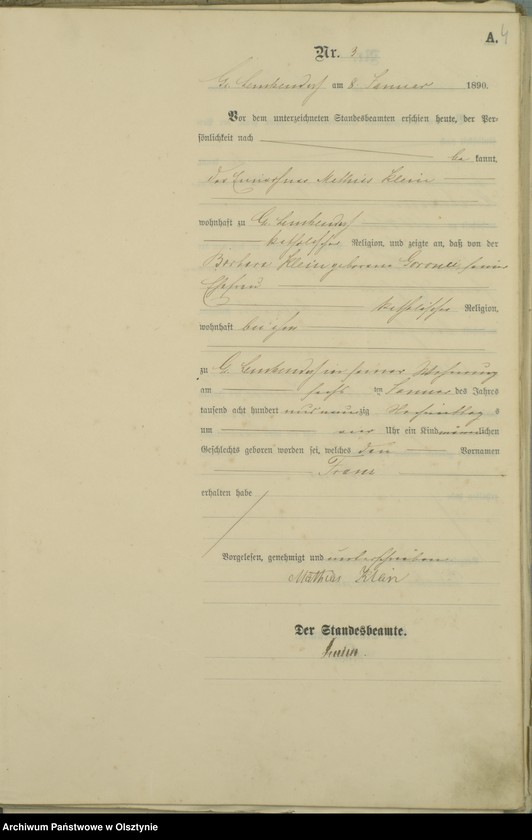 A. 4
Nr. 3
G. Lemkendorf am 8 Januar 1890.
Vor dem unterzeichneten Standesbeamten erschien heute, der Per-
sönlichkeit nach
be kannt,
der Mathias Klein
wohnhaft zu G. Lemkendorf
katholischer Religion, und zeigte an, daß von der
Barbara Klein geborene seiner
Ehefrau
katholischer Religion,
wohnhaft bei ihm
zu G. Lemkendorf in seiner Wohnung
am sechs ten Januar des Jahres
tausend acht hundert und neunzig Nachmittag s
um vier Uhr ein Kind männlichen
Geschlechts geboren worden sei, welches den Vornamen
Franz
erhalten habe
Vorgelesen, genehmigt und unterschrieben
Mathias Klein
Der Standesbeamte.
Archiwum Państwowe w Olsztynie